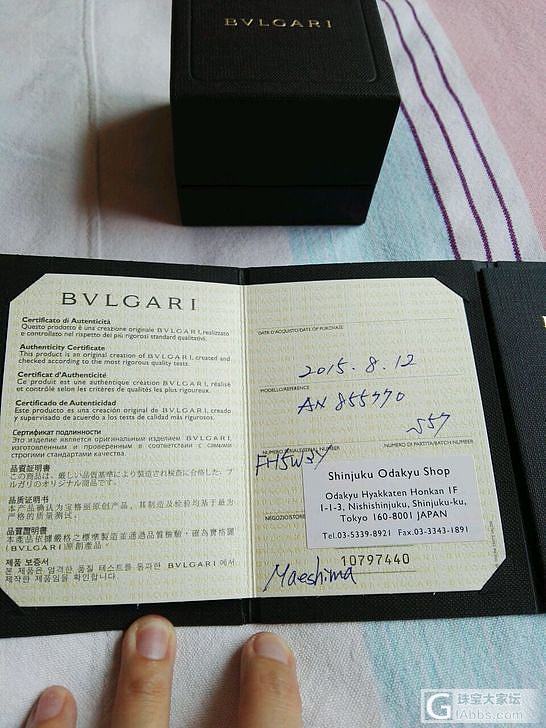 BVLGARI
BVLGARI
Certificato di Autenticità
Questo prodotto è una creazione originale BVLGARI, realizzato
e controllato nel rispetto dei più rigorosi standard qualitativi.
Authenticity Certificate
This product is an original creation of BVLGARI, created and
checked according to the most rigorous quality tests.
Certificat d'Authenticité
Ce produit est une authentique création BVLGARI, réalisé
et contrôlé selon les critères de qualités les plus rigoureux.
Certificado de Autenticidad
Este producto es una creación original de BVLGARI, creado
y supervisado de acuerdo a los tests de calidad más rigurosos.
Сертификат подлинности
Это изделие является оригинальным изделием BVLGARI,
изготовленным и проверенным в соответствии с самыми
строгими стандартами качества.
品質証明書
この商品は、厳しい品質基準により製造され検査に合格した、ブ
ルガリのオリジナル商品です。
品质证明书
本产品确认为宝格丽原创产品，其制造及检验均基于最为
严格的质量测试。
品質證明書
本產品依據嚴格之標準製造並通過品質檢驗，確為寶格麗
(BVLGARI)原創產品。
제품 보증서
본 제품은 엄격한 품질 테스트를 통과한 BVLGARI 에서
제작한 제품임을 확인합니다.
DATA D'ACQUISTO/DATE OF PURCHASE
2015.8.12
MODELLO/REFERENCE
AN 855770
S57
NUMERO SERIALE/SERIAL NUMBER
NUMERO DI PARTITA/BATCH NUMBER
FH5W37
Shinjuku Odakyu Shop
Odakyu Hyakkaten Honkan 1F
1-1-3, Nishishinjuku, Shinjuku-ku,
Tokyo 160-8001 JAPAN
Tel.03-5339-8921 Fax.03-3343-1891
NEGOZIO/STORE
10797440
Maeshima
珠宝大家坛
GIAbbs.com